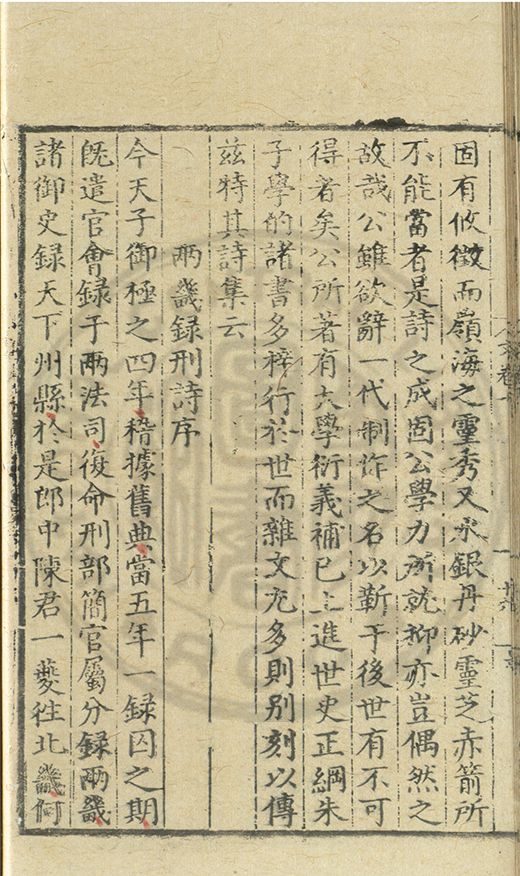 固有攸徵而嶺海之靈秀又水銀丹砂靈芝赤箭所
不能當者是詩之成固公學力所就抑亦豈偶然之
故哉公雖欲辭一代制作之名以靳于後世有不可
得者矣公所著有大學衍義補已上進世史正綱朱
子學的諸書多梓行於世而雜文尤多則別刻以傳
兹特其詩集云
兩畿録刑詩序
今天子御極之四年稽據舊典當五年一録囚之期
既遣官會録于兩法司復命刑部簡官屬分録兩畿
諸御史録天下州縣於是郎中陳君一夔往北畿何